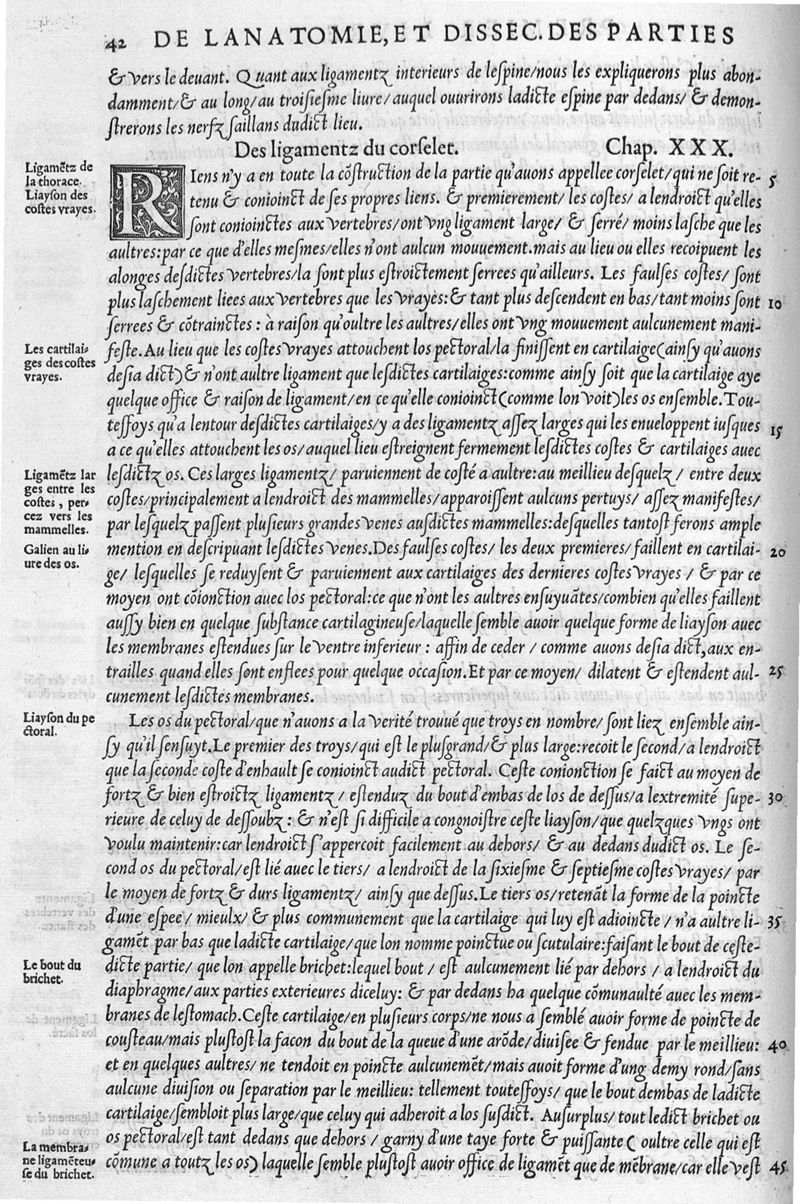 42 DE LANATOMIE, ET DISSEC. DES PARTIES
& vers le deuant. Quant aux ligamentz interieurs de lespine/nous les expliquerons plus abon-
damment/& au long/au troisiesme liure/auquel ouurirons ladicte espine par dedans/ & demon-
strerons les nerfz saillans dudict lieu.
Des ligamentz du corselet. Chap. XXX.
Ligamẽtz de
la thorace.
Liayson des
costes vrayes.
RIens n'y a en toute la cõstruction de la partie qu'auons appellee corselet/qui ne soit re- 5
tenu & conioinct de ses propres liens. & premierement/ les costes/ a lendroict qu'elles
sont conioinctes aux vertebres/ont vng ligament large/ & serré/ moins lasche que les
aultres:par ce que d'elles mesmes/elles n'ont aulcun mouuement.mais au lieu ou elles recoipuent les
alonges desdictes vertebres/la sont plus estroictement serrees qu'ailleurs. Les faulses costes/ sont
plus laschement liees aux vertebres que les vrayes:& tant plus descendent en bas/tant moins sont 10
serrees & cõtrainctes : à raison qu'oultre les aultres/elles ont vng mouuement aulcunement mani-
Les cartilai-
ges des costes
vrayes.
feste.Au lieu que les costes vrayes attouchent los pectoral/la finissent en cartilaige(ainsy qu'auons
desia dict)& n'ont aultre ligament que lesdictes cartilaiges:comme ainsy soit que la cartilaige aye
quelque office & raison de ligament/en ce qu'elle conioinct(comme lon voit)les os ensemble.Tou-
tesfoys qu'a lentour desdictes cartilaiges/y a des ligamentz assez larges qui les enueloppent iusques 15
a ce qu'elles attouchent les os/auquel lieu estreignent fermement lesdictes costes & cartilaiges auec
Ligamẽtz lar
ges entre les
costes , per-
cez vers les
mammelles.
lesdictz os. Ces larges ligamentz/ paruiennent de costé a aultre:au meillieu desquelz / entre deux
costes/principalement a lendroict des mammelles/apparoissent aulcuns pertuys/ assez manifestes/
par lesquelz passent plusieurs grandes venes ausdictes mammelles:desquelles tantost ferons ample
Galien au li-
ure des os.
mention en descripuant lesdictes venes.Des faulses costes/ les deux premieres/faillent en cartilai- 20
ge/ lesquelles se reduysent & paruiennent aux cartilaiges des dernieres costes vrayes / & par ce
moyen ont cõionction auec los pectoral:ce que n'ont les aultres ensuyuãtes/combien qu'elles faillent
aussy bien en quelque substance cartilagineuse/laquelle semble auoir quelque forme de liayson auec
les membranes estendues sur le ventre inferieur : affin de ceder / comme auons desia dict,aux en-
trailles quand elles sont enflees pour quelque occasion.Et par ce moyen/ dilatent & estendent aul- 25
cunement lesdictes membranes.
Liayson du pe
ctoral.
Les os du pectoral/que n'auons a la verité trouué que troys en nombre/ sont liez ensemble ain-
sy qu'il sensuyt.Le premier des troys/qui est le plusgrand/& plus large:recoit le second/a lendroict
que la seconde coste d'enhault se conioinct audict pectoral. Ceste conionction se faict au moyen de
fortz & bien estroictz ligamentz / estenduz du bout d'embas de los de dessus/a lextremité supe- 30
rieure de celuy de dessoubz : & n'est si difficile a congnoistre ceste liayson/que quelqzques vngs ont
voulu maintenir:car lendroict s'appercoit facilement au dehors/ & au dedans dudict os. Le se-
cond os du pectoral/est lié auec le tiers/ a lendroict de la sixiesme & septiesme costes vrayes/ par
le moyen de fortz & durs ligamentz/ ainsy que dessus.Le tiers os/retenãt la forme de la poincte
d'une espee/ mieulx/ & plus communement que la cartilaige qui luy est adioincte / n'a aultre li- 35
gamẽt par bas que ladicte cartilaige/que lon nomme poinctue ou scutulaire:faisant le bout de ceste-
Le bout du
brichet.
dicte partie/ que lon appelle brichet:lequel bout / est aulcunement lié par dehors / a lendroict du
diaphragme/aux parties exterieures diceluy: & par dedans ha quelque cõmunaulté auec les mem-
branes de lestomach.Ceste cartilaige/en plusieurs corps/ne nous a semblé auoir forme de poincte de
cousteau/mais plustost la facon du bout de la queue d'une arõde/diuisee & fendue par le meillieu: 40
et en quelques aultres/ ne tendoit en poincte aulcunemẽt/mais auoit forme d'ung demy rond/sans
aulcune diuision ou separation par le meillieu: tellement toutesfoys/ que le bout dembas de ladicte
cartilaige/sembloit plus large/que celuy qui adheroit a los susdict. Ausurplus/ tout ledict brichet ou
La membra-
ne ligamẽteu-
se du brichet.
os pectoral/est tant dedans que dehors / garny d'une taye forte & puissante( oultre celle qui est
cõmune a toutz les os) laquelle semble plustost auoir office de ligamẽt que de mẽbrane/car elle vest 45